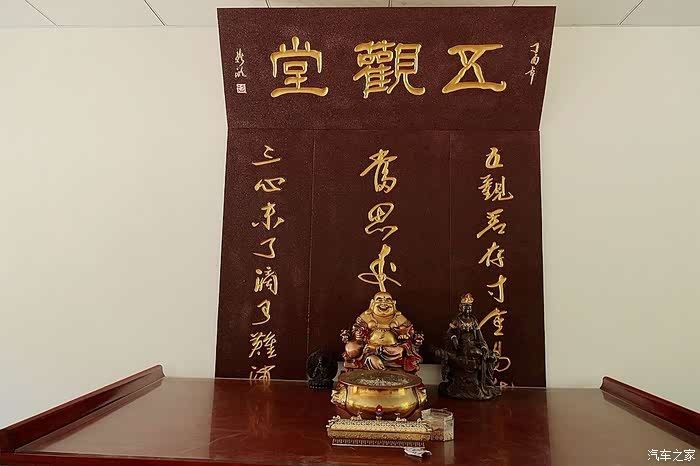 丁酉年
五觀堂
五觀若存千金易
當思來
三心未了滴水難消
汽车之家